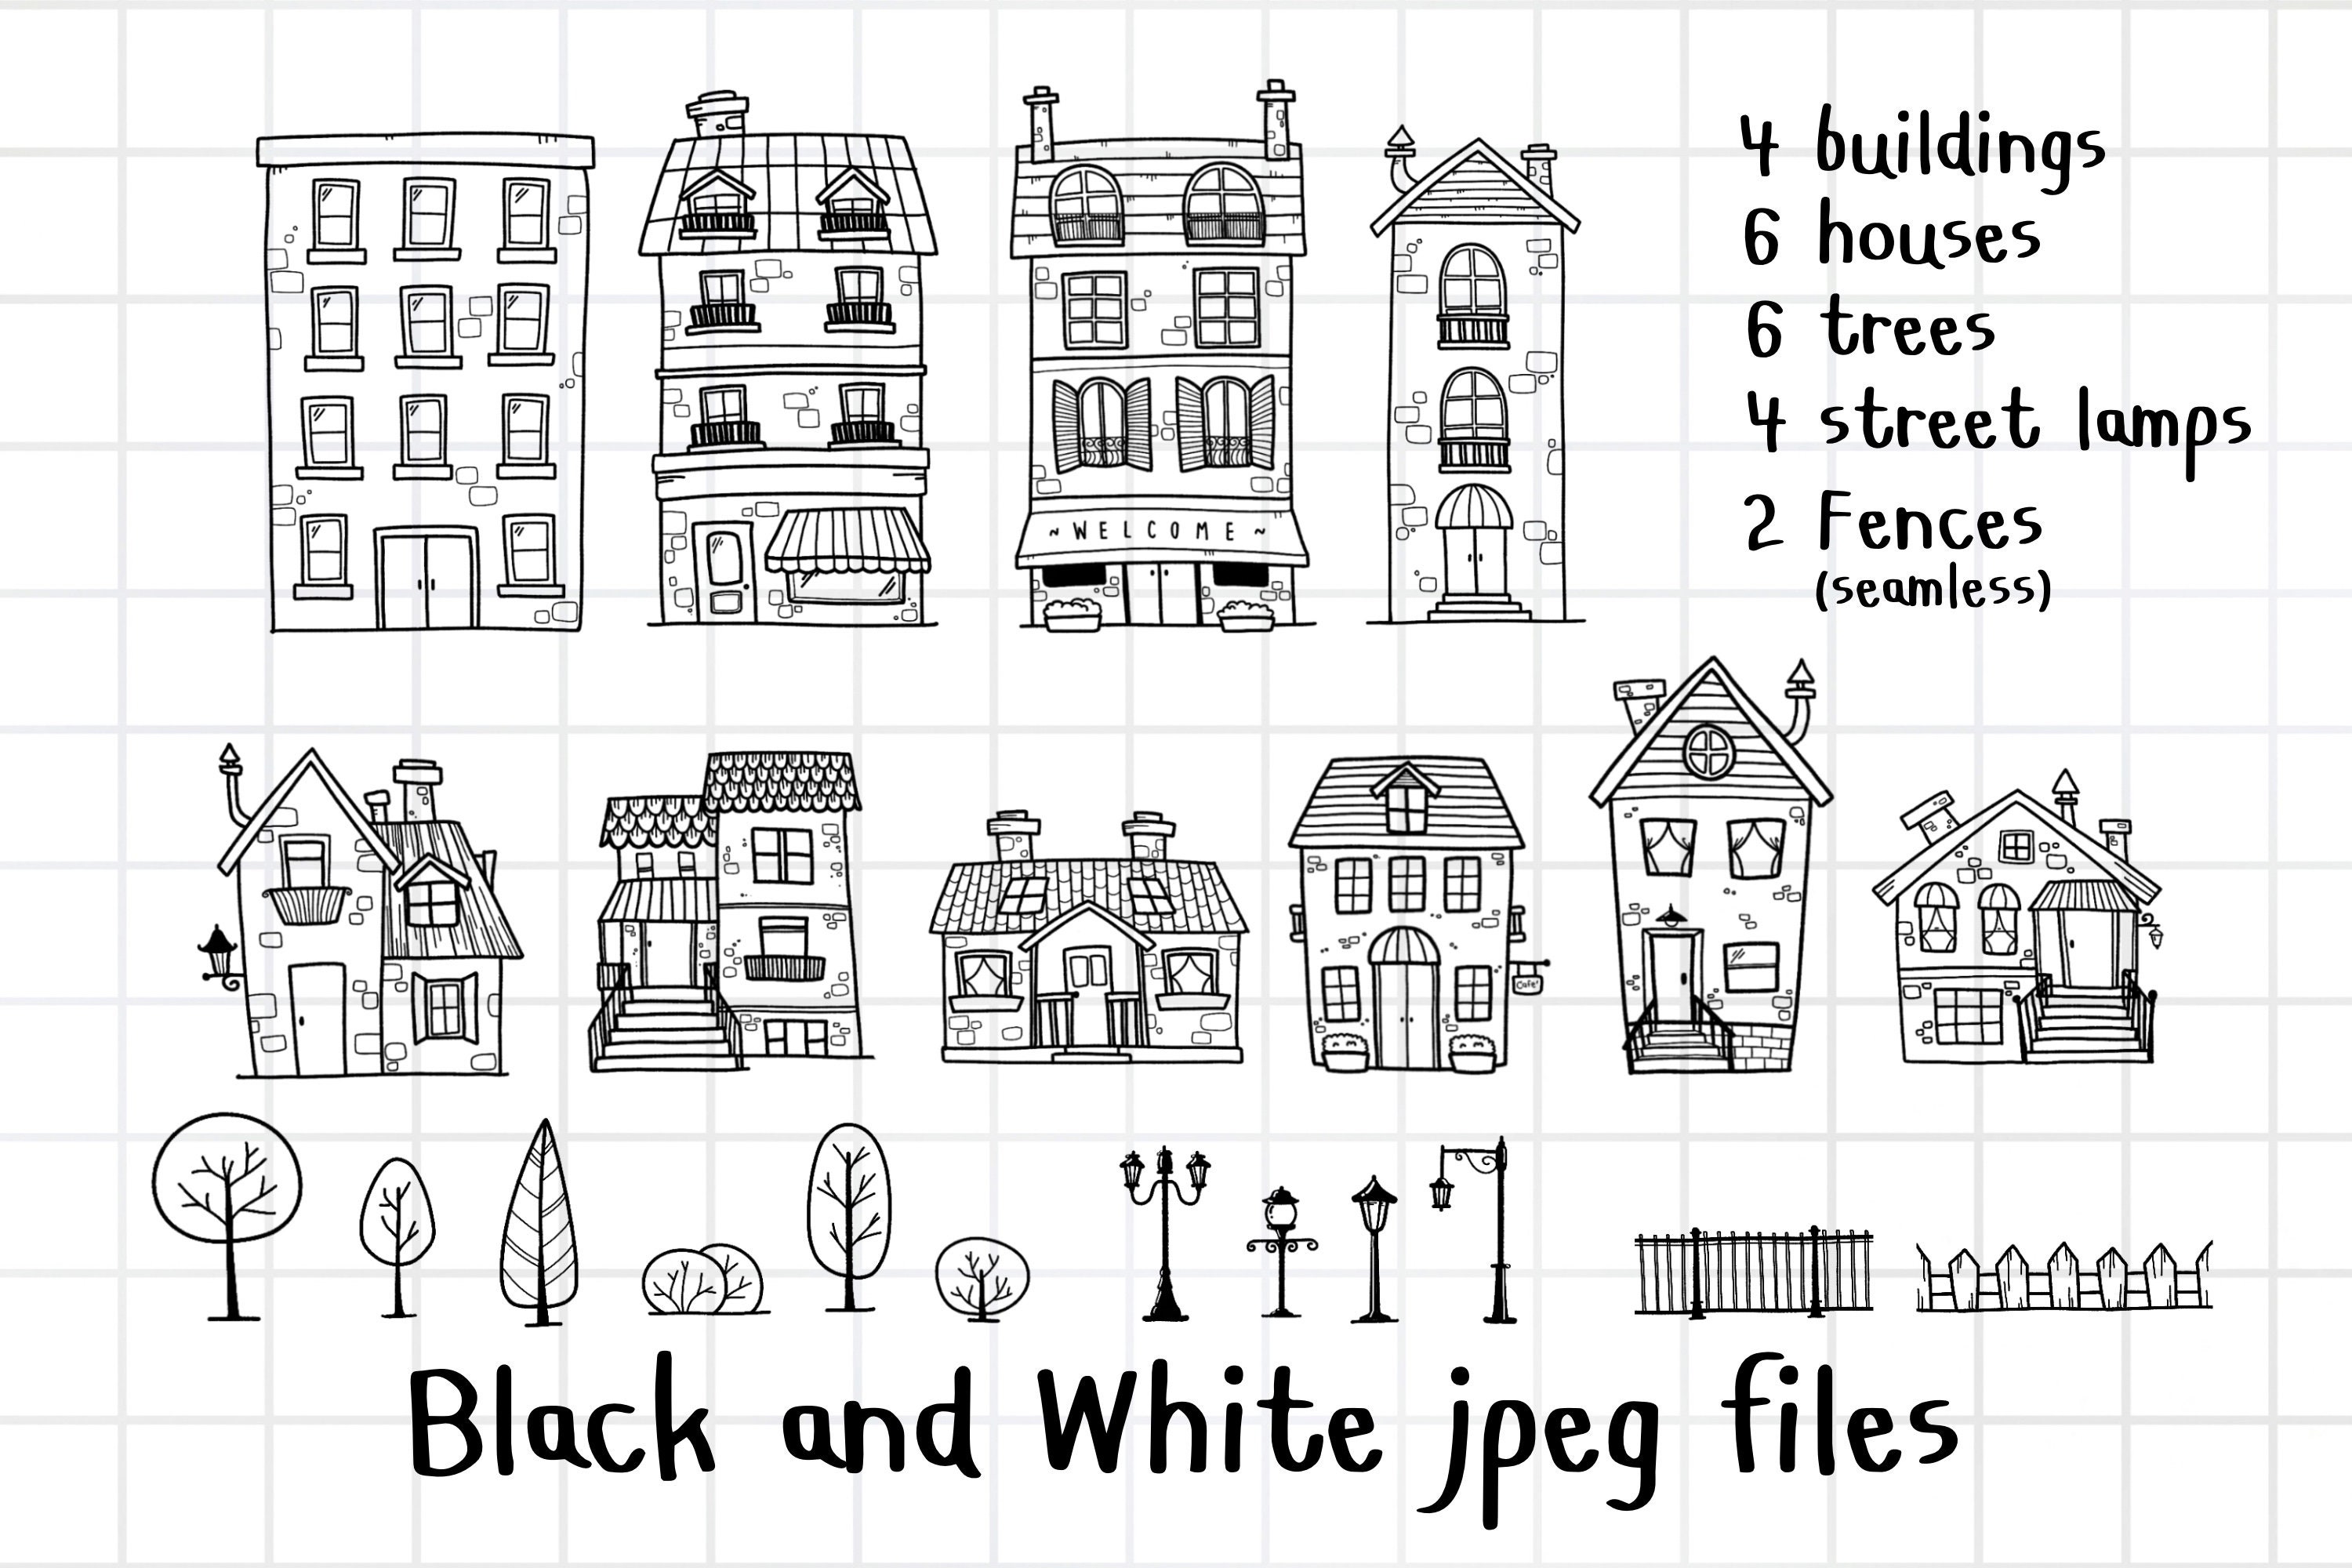 4 buildings
6 houses
6 trees
4 street lamps
2 Fences
(seamless)
~ WELCOME ~
Cafe'
Black and White jpeg files